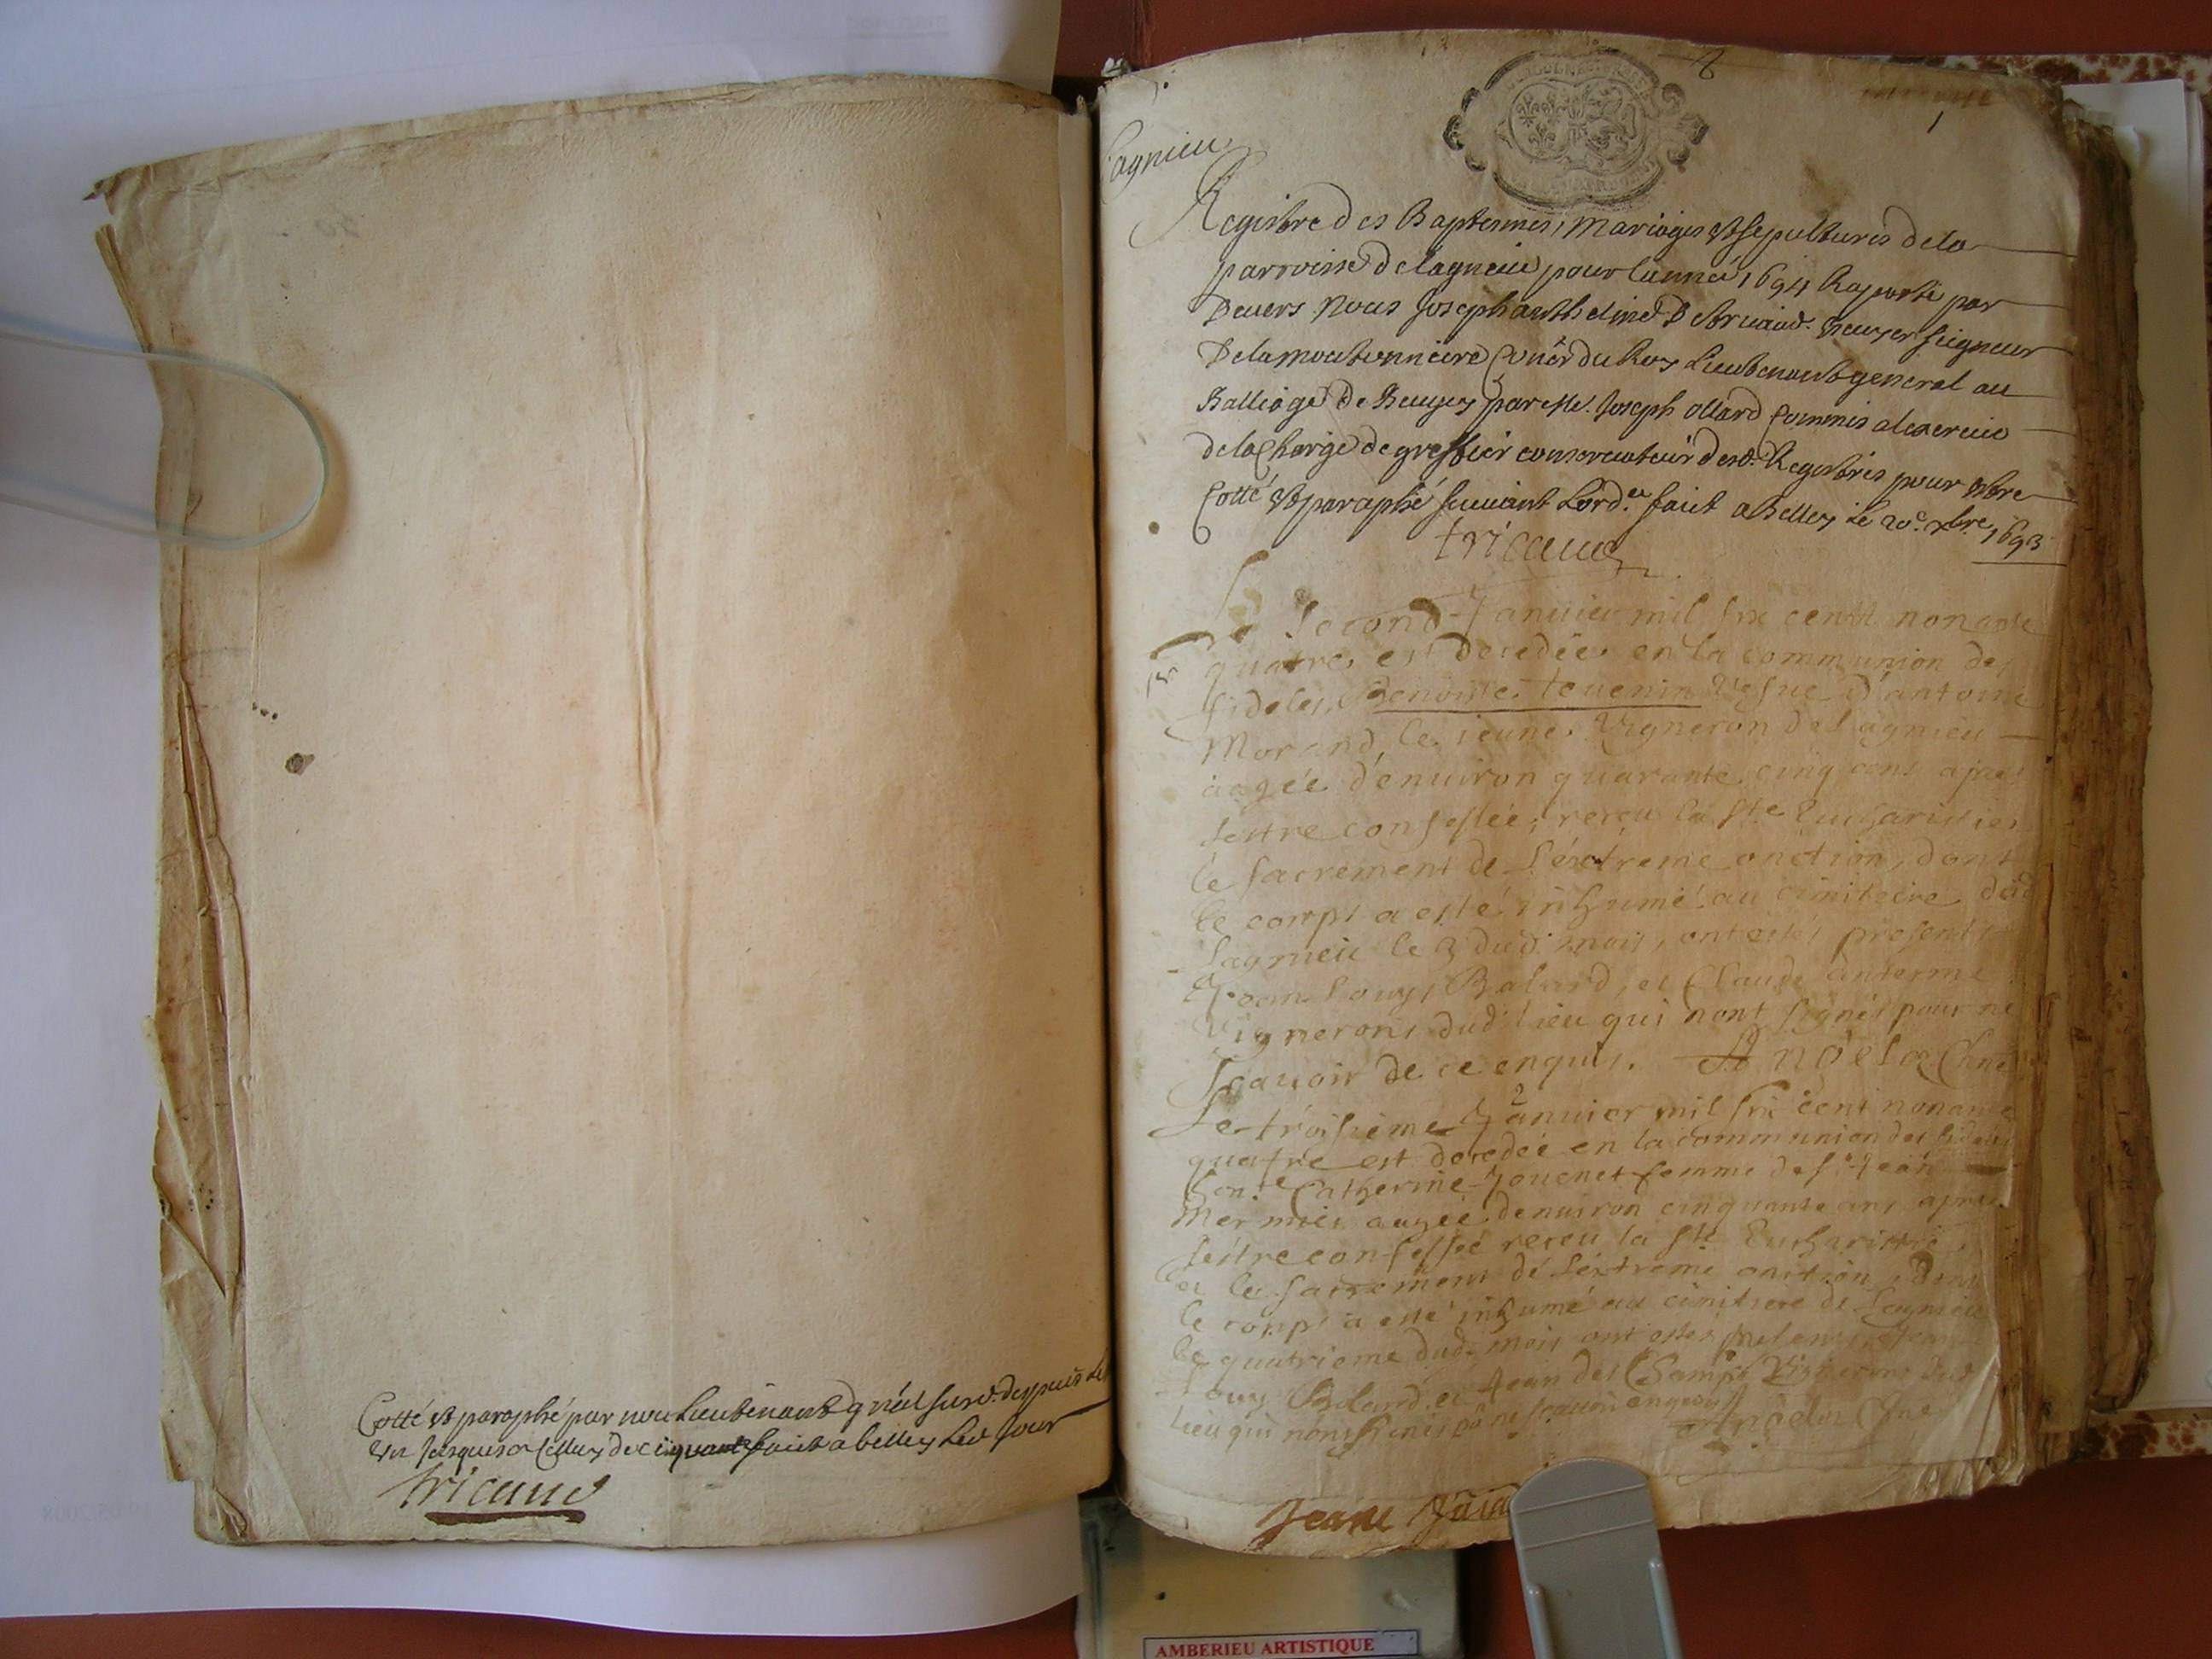 Cotté et paraphé par nous Lieutenant gñal susd. depuis le
un jusques a celluy de cinquante faict a belley led jour
tricaud
Lagnieu
1
Registre des Baptesmes, Mariages et sepultures de la
parroisse de lagnieu pour l'année 1694 Raporté par
Devers Nous Joseph anthelme De tricaud Escuyer seigneur
De la moutonniere Coner du Roy Lieutenant general au
Balliage de Beugey par Me. Joseph ollard Commis a lexercice
de la Charge de greffier conservateur desd. Registres pour estre
Cotté et paraphé suivant Lord.ce faict a Belley le 20e xbre 1693
tricaud
Le second Janvier mil six cents nonante
quatre est decedée en la communion des
fideles Benoiste tevenin vefue d'antoine
Morand le jeune Vigneron de Lagnieu
aagée d'environ quarante cinq ans apres
sestre confessée, receu la ste Eucharistie,
le sacrement de l'éxtreme onction, dont
le corps a esté inhumé au cimitiere dud
Lagnieu le 3 dud. mois, ont estés presents
Jean Louys Balard, et Claude anterme
Vignerons dud. lieu qui n'ont signés pour ne
scavoir de ce enquis.
Le troisieme Janvier mil six cent nonante
quatre est decedée en la communion des fideles
hon.te Catherine Jouenet femme de sr Jean
Mermier aagée denviron cinquante ans apres
sestre confessé receu la ste Eucharistie,
et le sacrement de l'extreme onction, dont
le corps a esté inhumé au cimitiere de Lagnieu
le quatrieme dud. mois ont estés presents Jean
Louys Balard et Jean des Champs Vignerons dud
lieu qui n'ont signés pour ne scavoir enquis
Jeane
AMBERIEU ARTISTIQUE